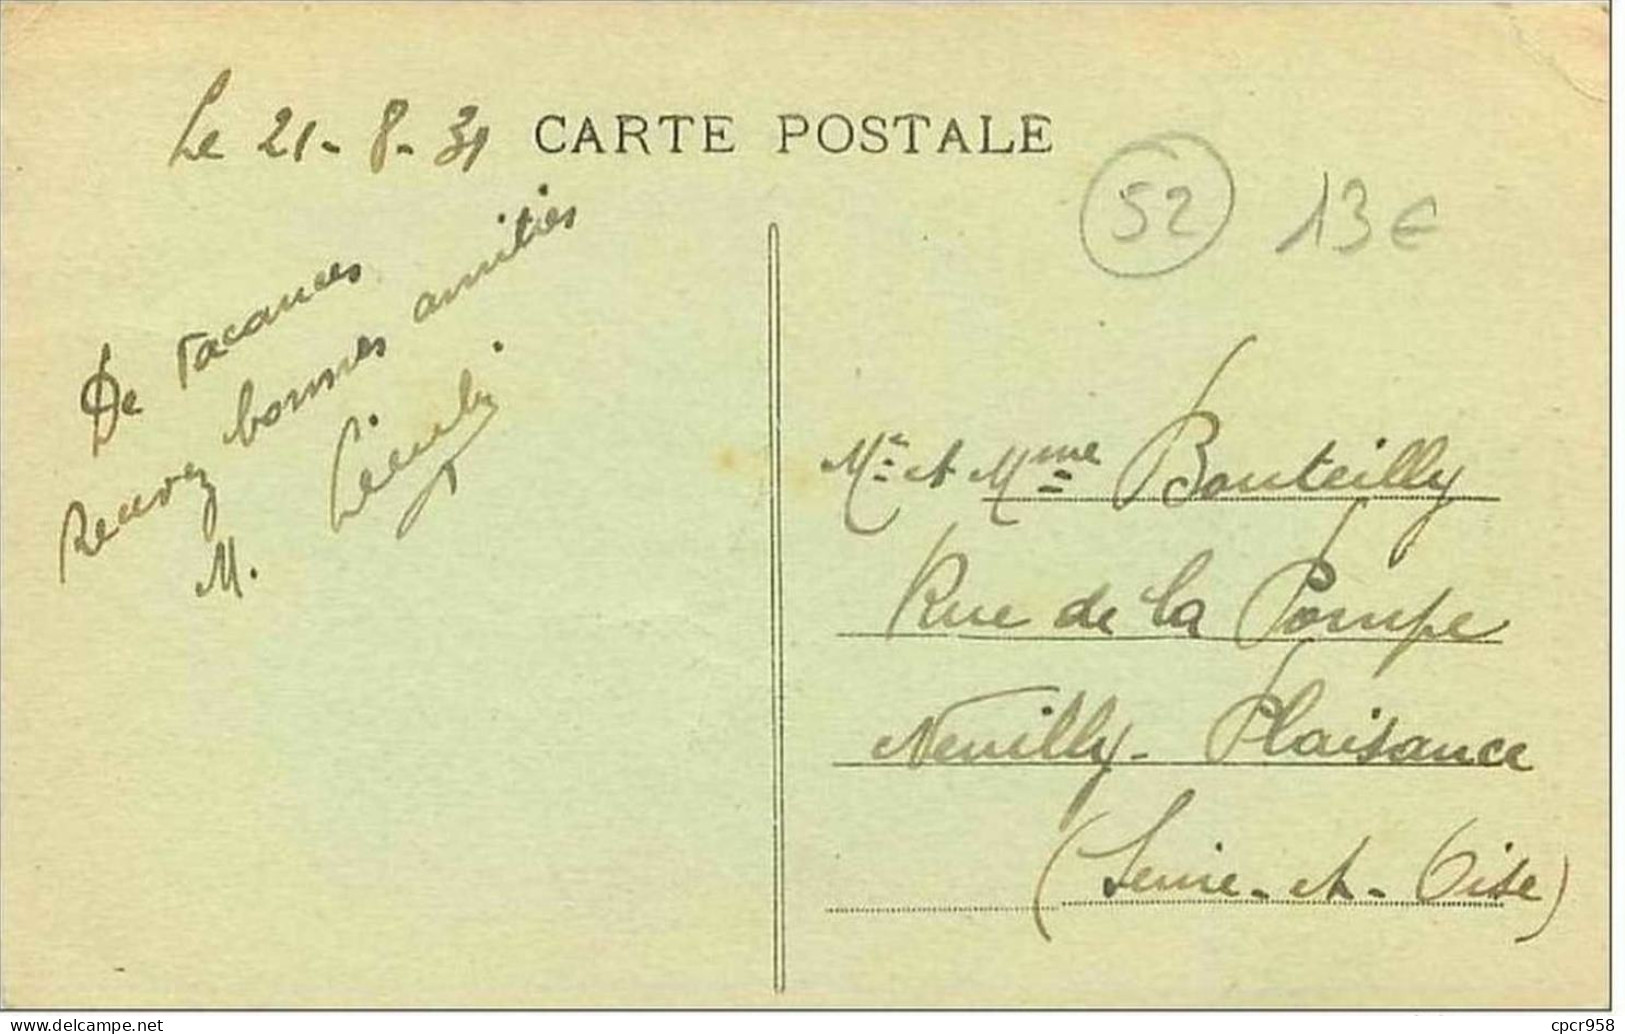 Le 21-8-31
CARTE POSTALE
52 13€
De vacances
Recevez bonnes amitiés
M.
Mr et Mme Bouteilly
Rue de la Pompe
Neuilly-Plaisance
(Seine-et-Oise)
cpcr958